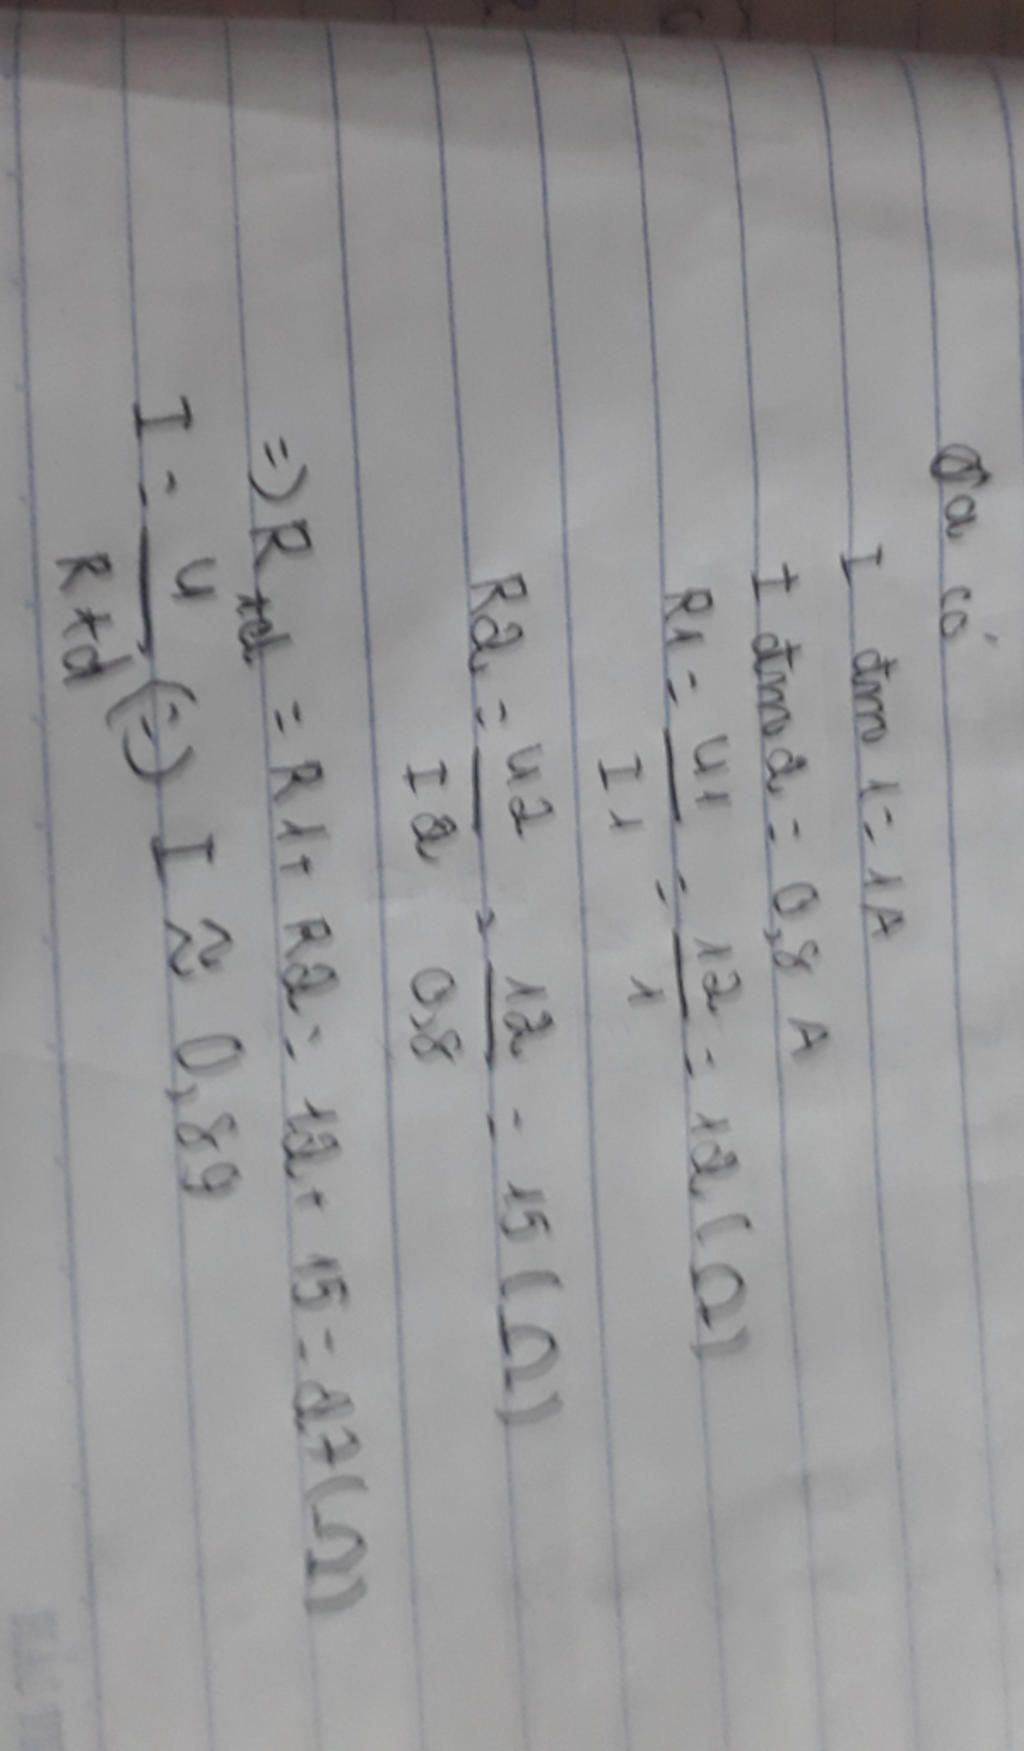 Ta có
I đm 1 = 1A
I đm 2 = 0,8 A
R1 = U1 / I1 = 12 / 1 = 12 (Ω)
R2 = U2 / I2 = 12 / 0,8 = 15 (Ω)
=> Rtđ = R1 + R2 = 12 + 15 = 27 (Ω)
I = U / Rtđ (=) I ≈ 0,89